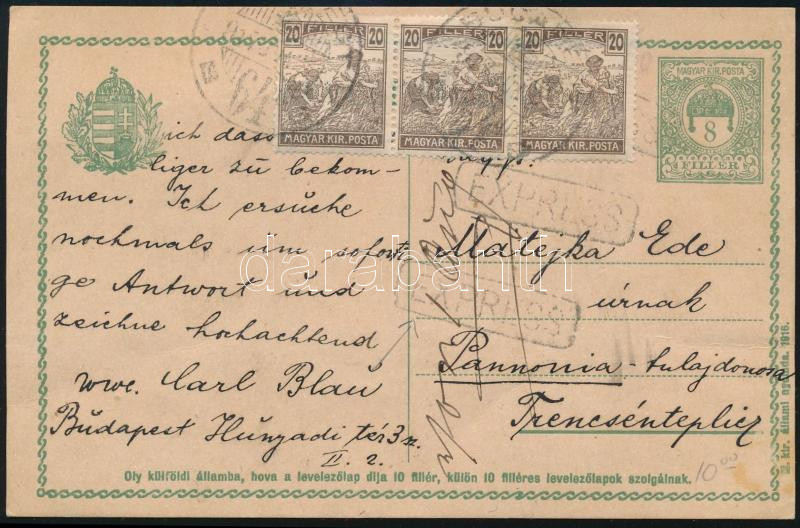 20 FILLER 20
MAGYAR KIR. POSTA
20 FILLER 20
MAGYAR KIR. POSTA
20 FILLER 20
MAGYAR KIR. POSTA
MAGYAR KIR. POSTA
8
FILLÉR
ich dass
liger zu bekom-
men. Ich ersuche
nochmals um soforti
ge Antwort und
zeichne hochachtend
wwe. Carl Blau
Budapest Hunyadi tér 3 sz.
II. 2.
EXPRESS
EXPRESS
Matejka Ede
úrnak
Pannonia-tulajdonosa
Trencsénteplicz
Oly külföldi államba, hova a levelezőlap dija 10 fillér, külön 10 filléres levelezőlapok szolgálnak.
M. kir. állami 1916.
10.00
darabanth